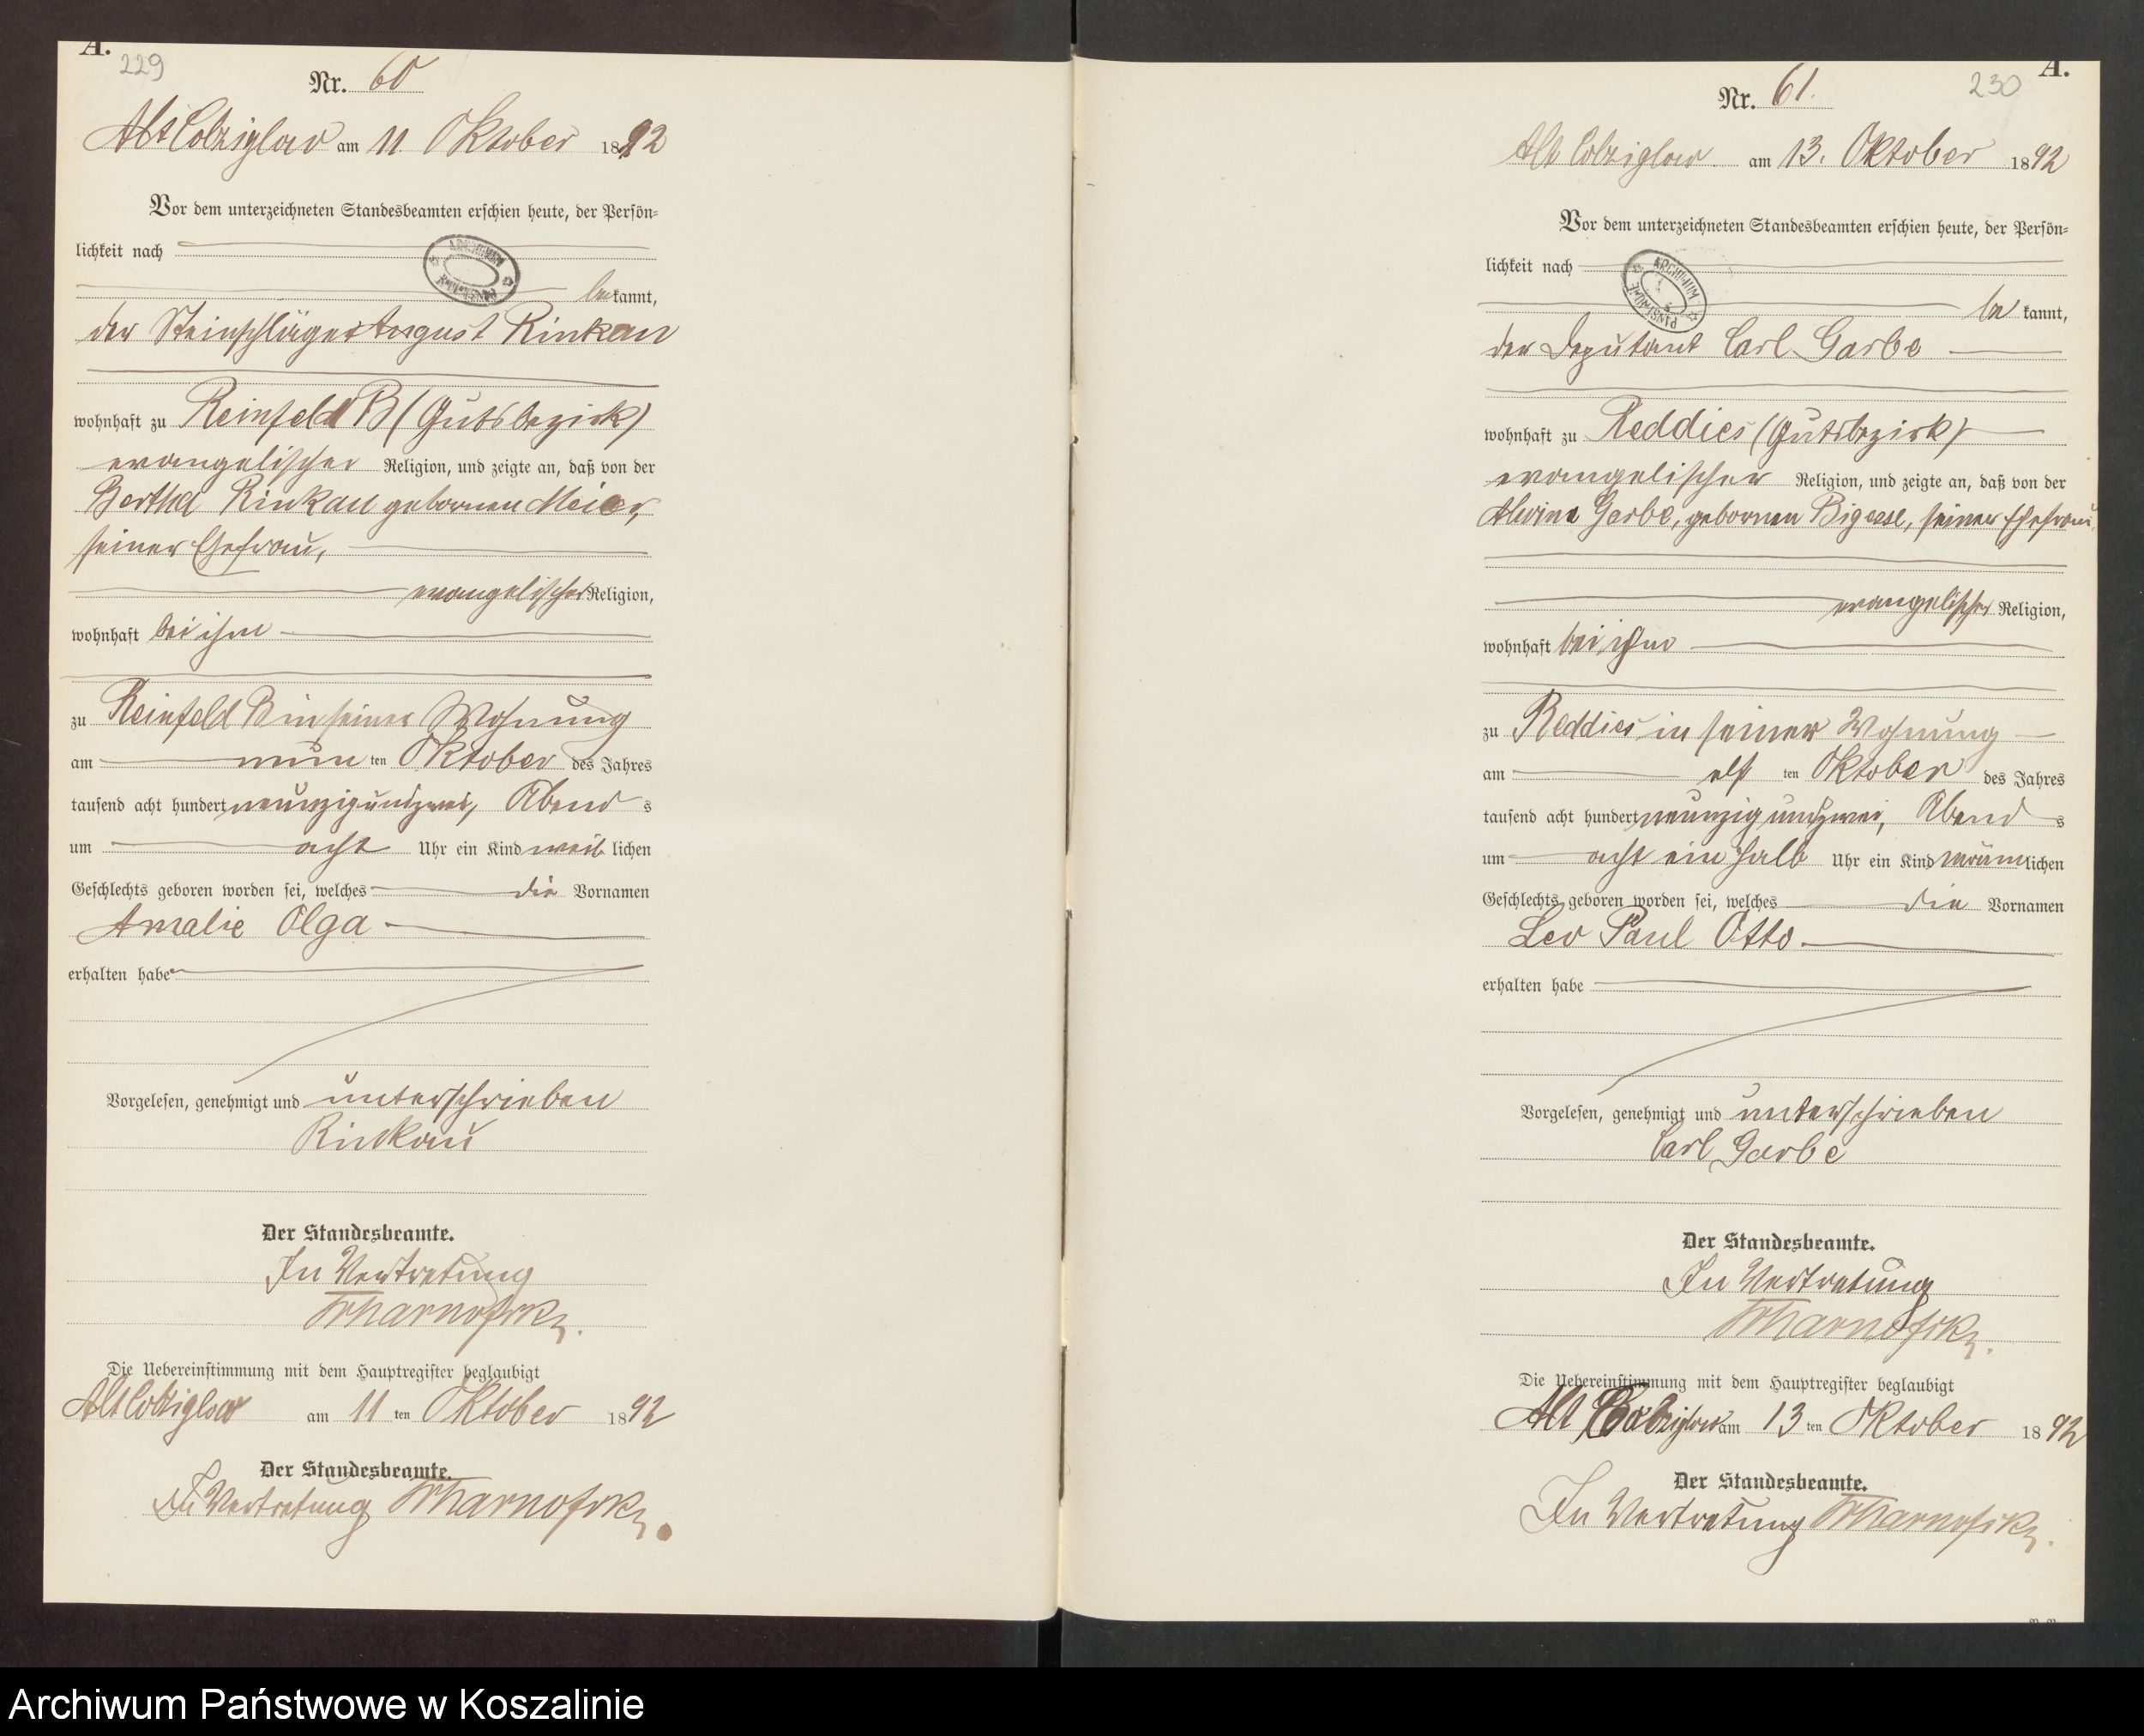 A.
229
Nr. 60
Alt Colziglow am 11 Oktober 1892
Vor dem unterzeichneten Standesbeamten erschien heute, der Persön-
lichkeit nach
ARCHIWUM PAŃSTWOWE
bekannt,
der Steinschläger August Rinkau
wohnhaft zu Reinfeld B (Gutsbezirk)
evangelischer Religion, und zeigte an, daß von der
Bertha Rinkau gebornen Meier,
seiner Ehefrau,
evangelischer Religion,
wohnhaft bei ihm
zu Reinfeld B in seiner Wohnung
am neun ten Oktober des Jahres
tausend acht hundert neunzig und zwei, Abend s
um acht Uhr ein Kind weib lichen
Geschlechts geboren worden sei, welches die Vornamen
Amalie Olga
erhalten habe
Vorgelesen, genehmigt und unterschrieben
Rinkau
Der Standesbeamte.
In Vertretung
Die Uebereinstimmung mit dem Hauptregister beglaubigt
Alt Colziglow am 11 ten Oktober 1892
Der Standesbeamte.
In Vertretung
A.
230
Nr. 61.
Alt Colziglow am 13. Oktober 1892
Vor dem unterzeichneten Standesbeamten erschien heute, der Persön-
lichkeit nach
ARCHIWUM PAŃSTWOWE
be kannt,
der Deputant Carl Garbe
wohnhaft zu Reddies (Gutsbezirk)
evangelischer Religion, und zeigte an, daß von der
Alwine Garbe, gebornen seiner Ehefrau,
evangelischer Religion,
wohnhaft bei ihm
zu Reddies in seiner Wohnung
am elf ten Oktober des Jahres
tausend acht hundert neunzig und zwei, Abend s
um acht ein halb Uhr ein Kind männlichen
Geschlechts geboren worden sei, welches die Vornamen
Leo Paul Otto
erhalten habe
Vorgelesen, genehmigt und unterschrieben
Carl Garbe
Der Standesbeamte.
In Vertretung
Die Uebereinstimmung mit dem Hauptregister beglaubigt
Alt Colziglow am 13 ten Oktober 1892
Der Standesbeamte.
In Vertretung
Archiwum Państwowe w Koszalinie